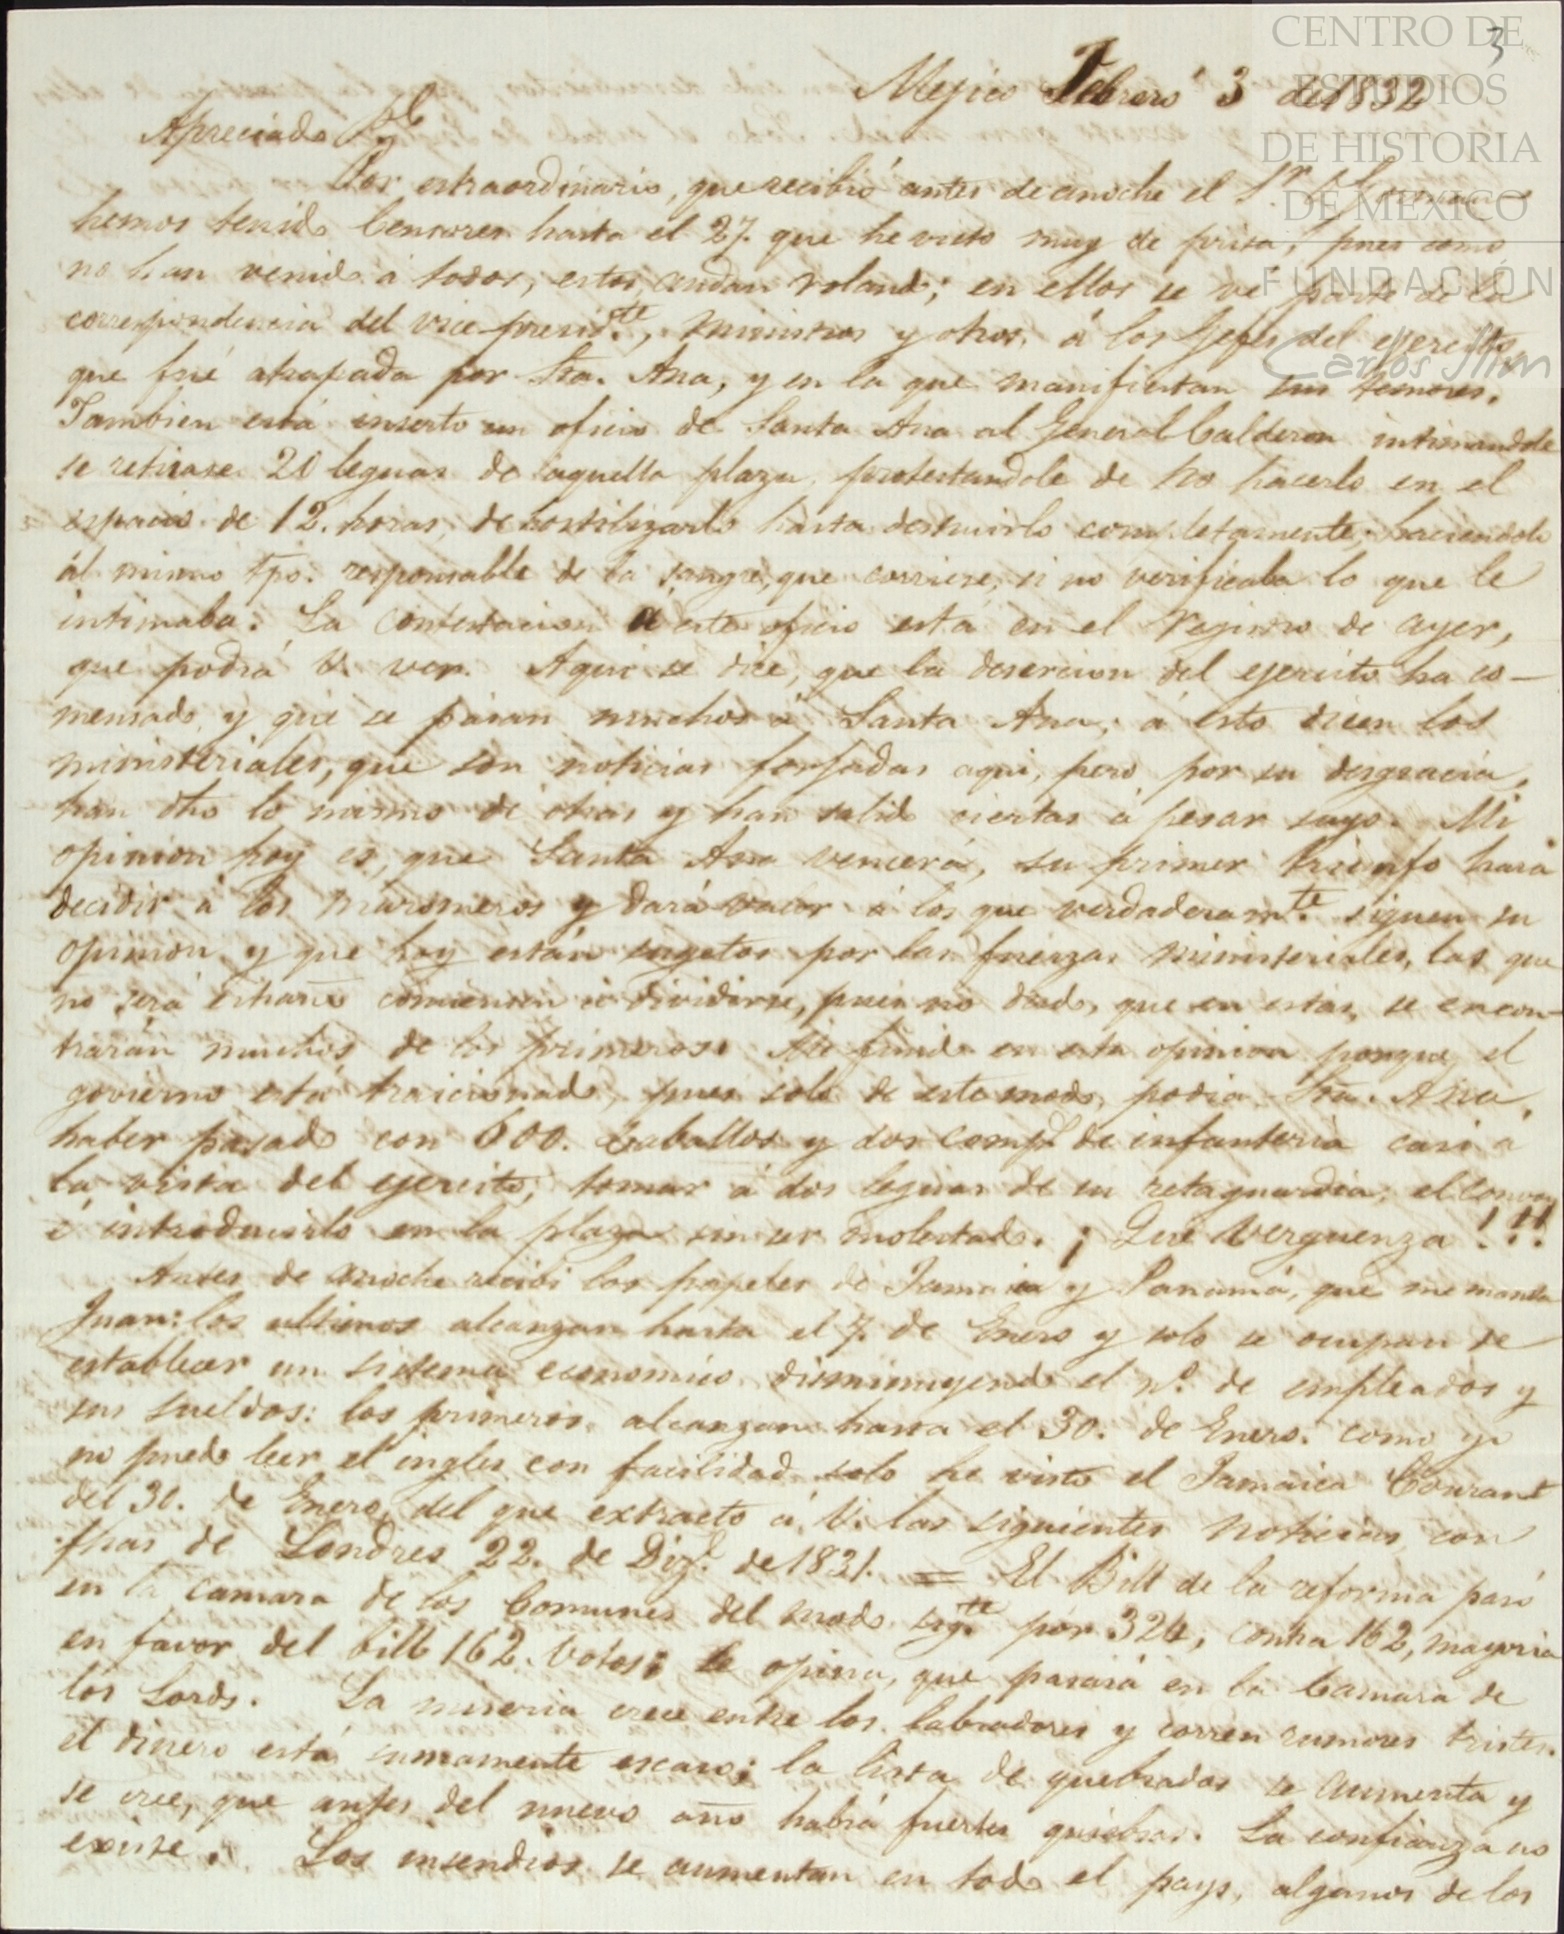 3
CENTRO DE
ESTUDIOS
DE HISTORIA
DE MEXICO
FUNDACIÓN
Carlos Slim
Mejico Febrero 3 de 1832
Apreciado
Por estraordinario, que recibió antes de anoche el Sr.
hemos tenido Censores hasta el 27. que he visto muy de prisa, pues como
no han venido á todos, estos andan volando; en ellos se ve parte de la
correspondencia del vice-presid.te, ministros y otros, á los Gefes del ejercito
que fué atrapada por Sta. Ana, y en la que manifiestan sus temores.
Tambien está inserto un oficio de Santa Ana al General Calderon intimandole
se retirase 20 leguas de aquella plaza, protestandole de no hacerlo en el
espacio de 12. horas, de hostilizarlo hasta destruirlo completamente; haciendole
al mismo tpo. responsable de la sangre, que corriere, si no verificaba lo que le
intimaba. La contestacion a este oficio está en el Registro de ayer,
que podrá V. ver. Aqui se dice, que la desercion del ejercito ha co-
mensado, y que se pasan muchos á Santa Ana; á esto dicen los
ministeriales, que son noticias forjadas aqui, pero por su desgracia,
han dho lo mismo de otras y han salido ciertas á pesar suyo. Mi
opinion hoy es, que Santa Ana vencerá, su primer triunfo hará
decidir á los maromeros y dará valor á los que verdaderam.te siguen su
opinion, y que hoy están sugetos por las fuerzas ministeriales, las que
no será estraño comiencen á dividirse, pues no dudo, que en estas, se encon-
trarán muchos de los primeros. Me fundo en esta opinion porque el
govierno está traicionado, pues solo de este modo, podia Sta. Ana,
haber pasado con 600. Caballos y dos comp.s de infanteria casi á
la vista del ejercito, tomar á dos leguas de su retaguardia, el convoy
é introducirlo en la plaza sin ser molestado. ¡ Qué Verguenza !!!
Antes de anoche recibi los papeles de Jamaica y Panamá, que me manda
Juan: los ultimos alcanzan hasta el 7. de Enero y solo se ocupan de
establecer un sistema economico, disminuyendo el nº. de empleados y
sus sueldos: los primeros alcanzan hasta el 30. de Enero. como yo
no puedo leer el ingles con facilidad solo he visto el Jamaica Courant
del 30. de Enero, del que extracto á V. las siguientes noticias con
fhas de Londres 22. de Diz.e de 1831. = El Bill de la reforma pasó
en la camara de los Comunes del modo sig.te por 324, contra 162, mayoria
en favor del bill 162. Votos; se opina, que pasará en la Camara de
los Lords. La miseria crece entre los labradores y corren rumores tristes.
el dinero está sumamente escaso; la lista de quebrados se aumenta y
se cree, que antes del nuevo año habrá fuertes quiebras. La confianza no
existe. Los insendios se aumentan en todo el pays, algunos de los